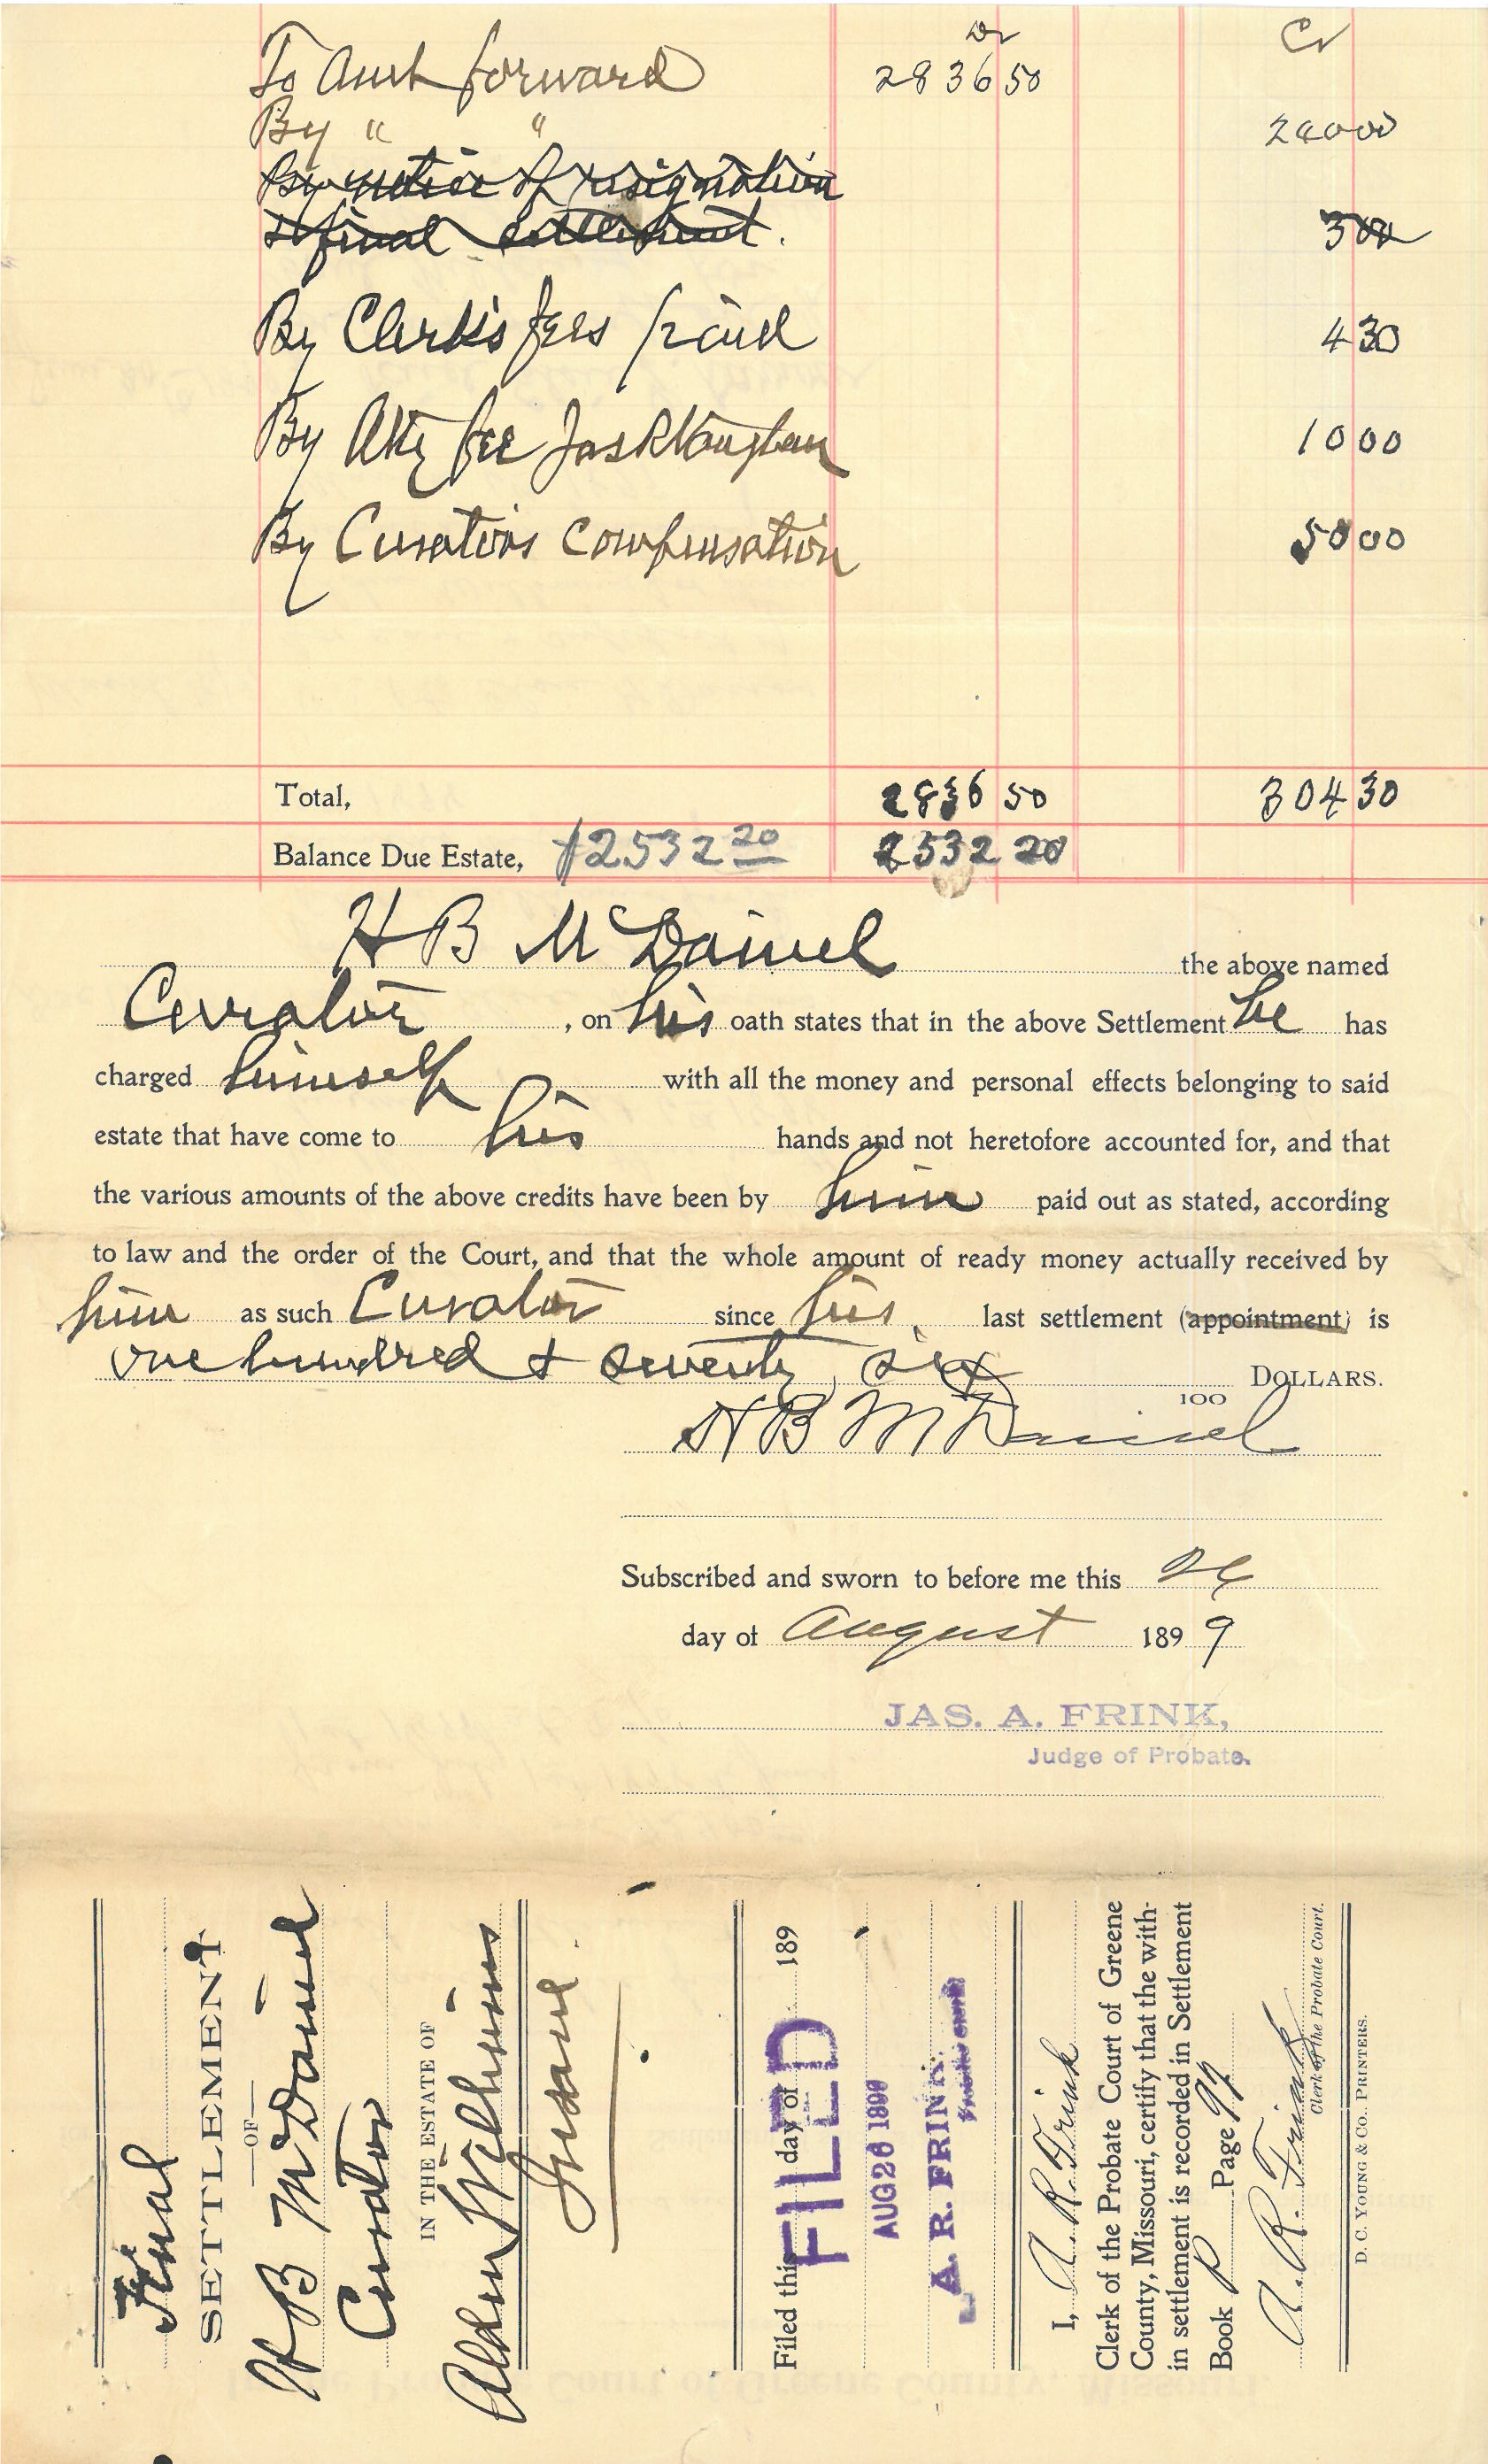 Dr Cr
To Amt forward 2836 50
By " " 240 00
By notice of resignation
& final settlement. 3 00
By Clerk's fees paid 4 30
By Atty fee Jas R Vaughan 10 00
By Curators Compensation 50 00
Total, 2836 50 304 30
Balance Due Estate, $2532 20 2532 20
H B McDaniel the above named
Curator, on his oath states that in the above Settlement he has
charged himself with all the money and personal effects belonging to said
estate that have come to his hands and not heretofore accounted for, and that
the various amounts of the above credits have been by him paid out as stated, according
to law and the order of the Court, and that the whole amount of ready money actually received by
him as such Curator since his last settlement (appointment) is
one hundred & seventy six DOLLARS.
100
H B McDaniel
Subscribed and sworn to before me this 26
day of August 1899
JAS. A. FRINK,
Judge of Probate.
Final
SETTLEMENT
—OF—
H B McDaniel
Curator
IN THE ESTATE OF
Williams
Insane.
Filed this day of 189
FILED
AUG 26 1899
A. R. FRINK.
I, A. R. Frink
Clerk of the Probate Court of Greene
County, Missouri, certify that the with-
in settlement is recorded in Settlement
Book P Page 97
A. R. Frink
Clerk of the Probate Court.
D. C. YOUNG & CO., PRINTERS.